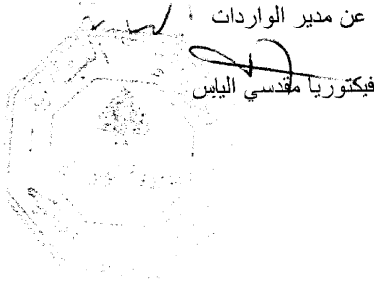 عن مدير الواردات
فيكتوريا مقدسي الياس